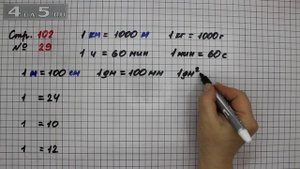 4 GDZ.RU
Стр. 102
1 км = 1000 м
1 кг = 1000 г
№ 29
1 ч = 60 мин
1 мин = 60 с
1 м = 100 см
1 дм = 100 мм
1 дм²
1 = 24
1 = 10
1 = 12